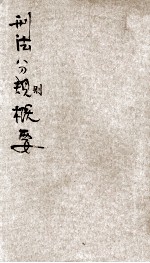 刑法分規概要
則